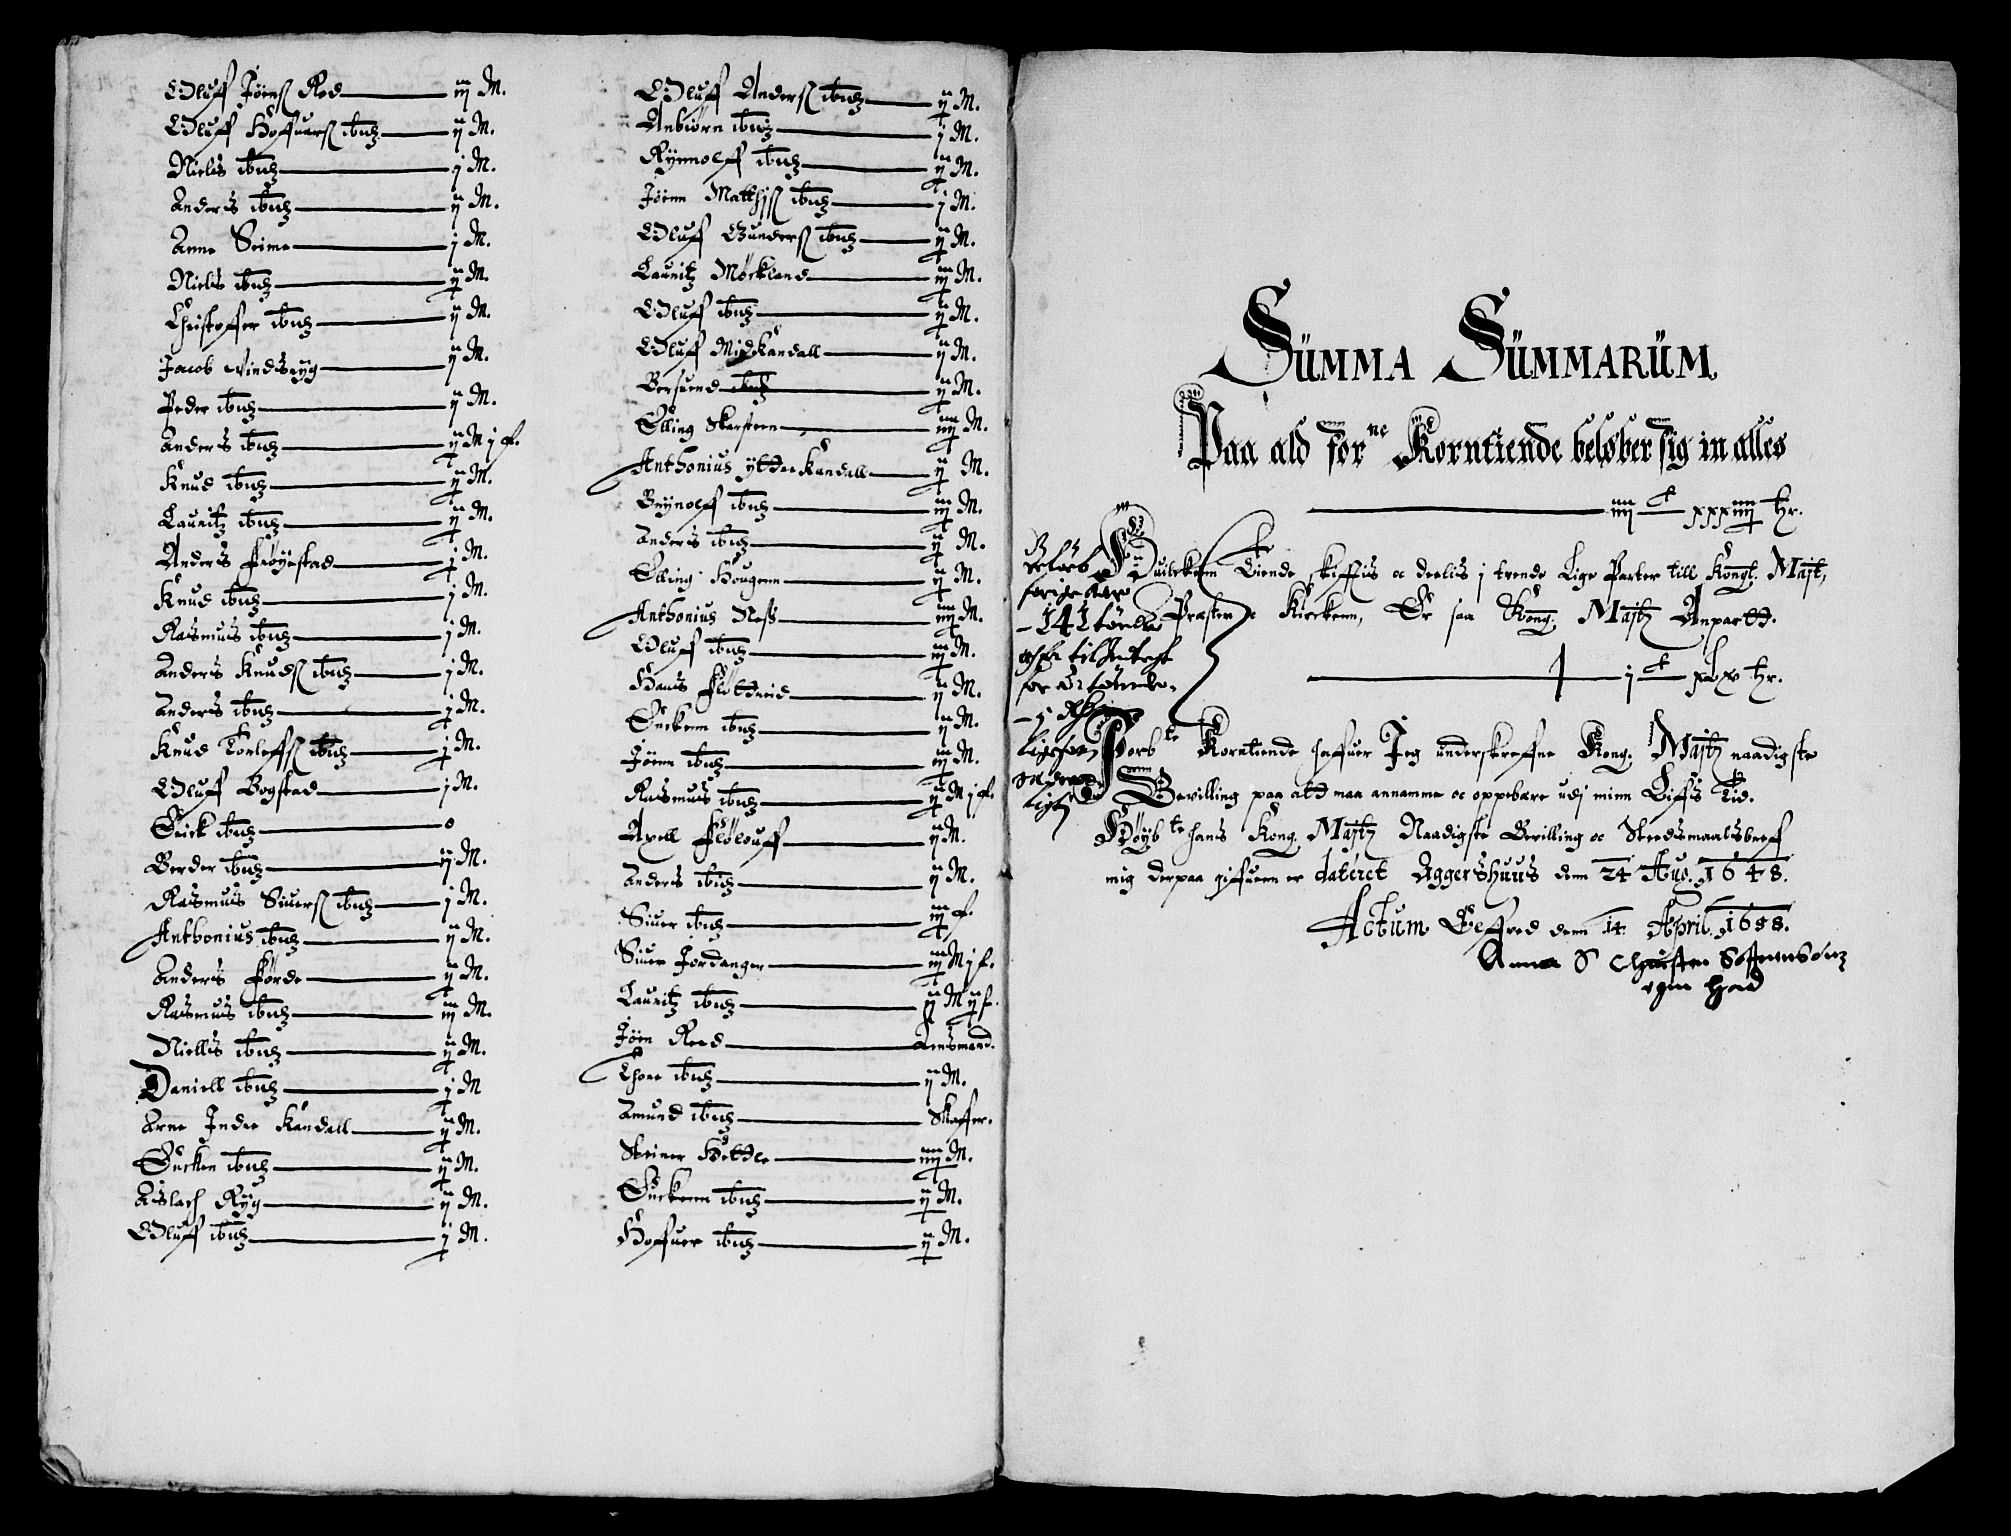 Oluff Jøens Red — iij M.
Oluff Hoffuars ibid — ij M.
Niels ibid — j M.
Anders ibid — ij M.
Anne Seime — j M.
Niels ibid — ij M.
Christoffer ibid — ij M.
Jacob Vindsryg — ij M.
Peder ibid — ij M.
Anders ibid — ij M j f.
Knud ibid — ij M.
Lauritz ibid — ij M.
Anders Frøystad — j M.
Knud ibid — j M.
Rasmus ibid — j M.
Anders Knuds ibid — j M.
Anders ibid — j M.
Knud Torleffs ibid — j M.
Oluff Bogstad — j M.
Erick ibid — o
Berder ibid — ij M.
Rasmus Siuers ibid — j M.
Anthonius ibid — ij M.
Anders Førde — ij M.
Rasmus ibid — iij M.
Niellis ibid — ij M.
Daniell ibid — j M
Arne Indre Kandall — ij M.
Encken ibid — ij M.
Aslach Ryg — ij M.
Oluff ibid — j M.
Oluff Anders ibid — ij M.
Anbiørn ibid — j M.
Rynnolff ibid — ij M.
Jøenn Matthis ibid — j M.
Oluff Gunders ibid — ij M.
Lauritz Møckland — iij M.
Oluff ibid — ij M.
Oluff Midkandall — ij M.
Bersuend ibid — ij M.
Elling Skarsteen — iiij M.
Anthonius ytter Kandall — ij M.
Brynolff ibid — iij M.
Anders ibid — ij M.
Elling Hougenn — ij M.
Anthonius Ness — iiij M.
Oluff ibid — iij M.
Hans Fløttreid — ij M.
Enckenn ibid — ij M.
Jøenn ibid — iij M.
Rasmus ibid — ij M j f.
Axell Fløløuff — ij M.
Anders ibid — ij M.
Siuer ibid — iij f.
Siuer Jordanger — iij M j f.
Lauritz ibid — ij M ij f.
Jøen Reed — Lensmand.
Thore ibid — ij M.
Amund ibid — Skaffer.
Steiner Hettle — iiij M.
Enckenn ibid — ij M.
Hoffuer ibid — ij M.
SUMMA SUMMARUM.
Paa ald forne Korntiende beløber sig in alles
— iiij C xxxiiij tr.
Huilcken Tiende skifftis oc deelis j trende Lige Parter till Kongl. Majt,
Præsten oc Kirckenn, Er saa Kong. Majtz Anpartt.
— j C xlv tr.
Beløb
forige Aar
— 141 tønder
til Andtegt
for 4 tønde.
— j
Forbte Korntiende haffuer Jeg underskreffne Kong. Majtz naadigste
Bevilling paa att maa annamme oc oppebære udj minn Liffs Tid.
Høybte hans Kong. Majtz Naadigste Bevilling oc Steedsmaalsbreff
mig derpaa giffuenn er dateret Aggershuus denn 24 Aug. 1648.
Actum Leffred denn 14 April 1655.
Anna S Christen Søffrennsønz
egen Hand